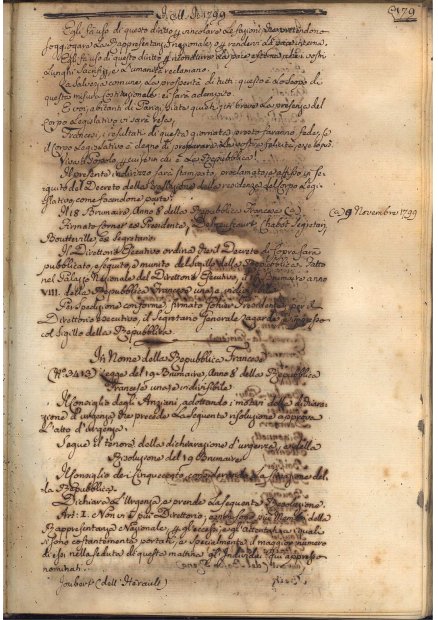 In Ill. A. 1799
179
Egli fà uso di questo diritto p. incatenare le fazioni, che pretendono
soggiogare la Rappresentanza nazionale, e p. rendervi la pace interna.
Egli fà uso di questo diritto p. ricondurre la pace esterna, che i vostri
lunghi Sacrifizj, e l'umanità reclamano.
La Salvezza comune, la prosperità di tutti, questo è lo scopo di
questa misura Costituzionale: ei sarà adempito.
E voi, abitanti di Parigi, State quieti, frà breve la presenza del
Corpo Legislativo vi sarà resa;
Francesi, i resultati di questa giornata presto faranno fede, se
il Corpo Legislativo è degno di preparare la vostra felicità, e se lo può.
Viva il Popolo, p. cui, e in cui è la Repubblica!
Il presente indirizzo sarà stampato, proclamato, e affisso in se-
guito del Decreto della traslazione della residenza del Corpo Legi-
slativo, come facendone parte.
Il 18 Brumaire, Anno 8 della Repubblica Francese
9 Novembre 1799
Firmato Cornet ex Presidente, Chabot
Bouttville, ex Segretario
Il Direttorio Esecutivo ordina, che il Decreto di sopra sarà
pubblicato, eseguito, e munito del sigillo della Repubblica. Fatto
nel Palazzo Nazionale del Direttorio Esecutivo, il Brumaire anno
VIII. della Repubblica Francese una, e indivisibile
Per Spedizione conforme, firmato Gohier Presidente, per il
Direttorio Esecutivo, il Segretario Generale Lagarde, e impresso
col Sigillo della Repubblica
In Nome della Repubblica Francese
(N.o 3413) Legge del 19 Brumaire, Anno 8 della Repubblica
Francese una, e indivisibile
Il Consiglio degli Anziani, adottando i motivi della dichiara-
zione d'urgenza che precede la seguente risoluzione, approva
l'atto d'Urgenza.
Segue il tenore della dichiarazione d'urgenza, e della
Risoluzione del 19 Brumaire
Il Consiglio de Cinquecento, considerando la situazione del-
la Repubblica,
Dichiara l'Urgenza, e prende la seguente Risoluzione.
Art: I. Non vi è più Direttorio; e non sono più Membri della
Rappresentanza Nazionale, p. gli eccessi, e gli attentati ai quali
si sono costantemente portati, e specialmente il maggior numero
di essi nella seduta di questa mattina, gli Individui qui appresso
nominati.
Joubert (dell'Hérault)